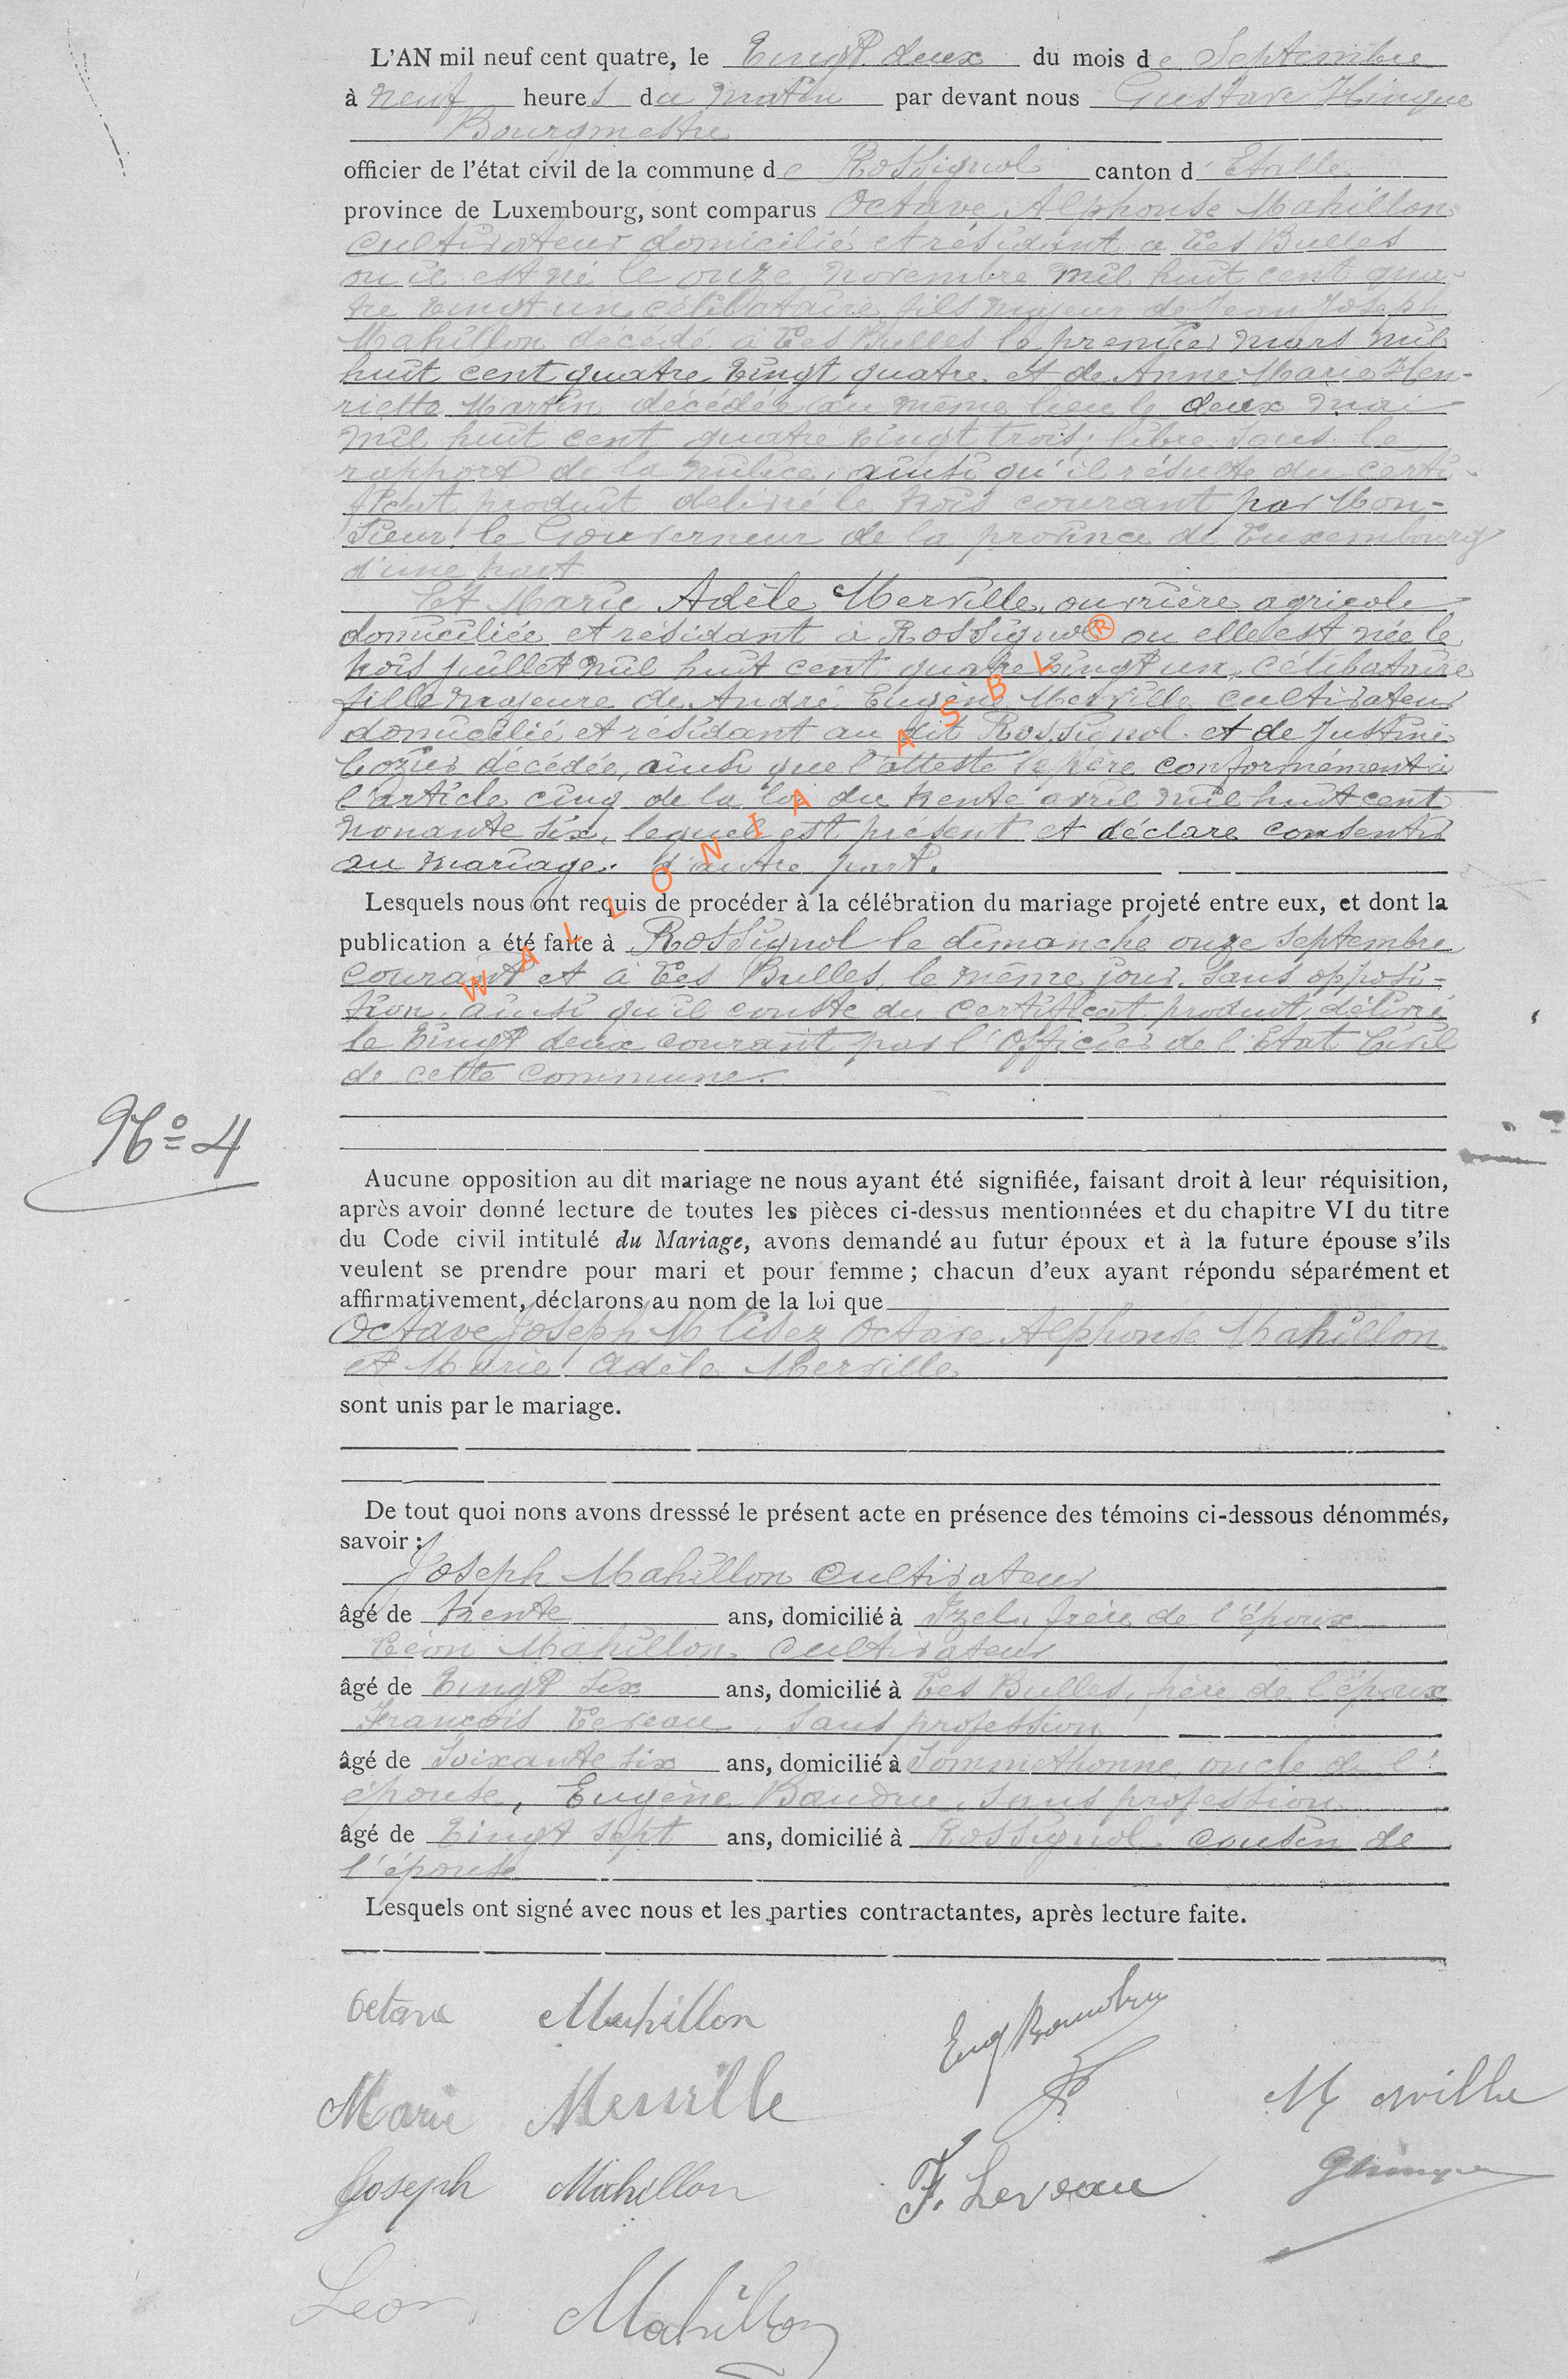 L'AN mil neuf cent quatre, le Vingt deux du mois de Septembre
à neuf heures du matin par devant nous Gustave Hinque
Bourgmestre
officier de l'état civil de la commune de Rossignol canton d'Etalle
province de Luxembourg, sont comparus Octave Alphonse Mahillon
cultivateur domicilié et résidant a Les Bulles
ou il est né le onze novembre mil huit cent qua-
tre vingt un, célibataire, fils majeur de Jean Joseph
Mahillon décédé à Les Bulles le premier mars mil
huit cent quatre vingt quatre et de Anne Marie Hen-
riette Martin décédée au même lieu le deux mai
mil huit cent quatre vingt trois; libre sous le
rapport de la milice, ainsi qu'il résulte du certi-
ficat produit delivré le trois courant par Mon-
sieur le Gouverneur de la province de Luxembourg
d'une part
Et Marie Adèle Merville, ouvrière agricole
domiciliée et résidant à Rossignol ou elle est née le
trois juillet mil huit cent quatre vingt un, célibataire
fille majeure de André Eugène Merville cultivateur
domicilié et résidant au dit Rossignol et de Justine
Lozier décédée, ainsi que l'atteste le père conformément à
l'article cinq de la loi du trente avril mil huit cent
nonante six, lequel est présent et déclare consentir
au mariage. d'autre part.
Lesquels nous ont requis de procéder à la célébration du mariage projeté entre eux, et dont la
publication a été faite à Rossignol le dimanche onze septembre
courant et à Les Bulles, le même jour, sans opposi-
tion, ainsi qu'il conste du certificat produit, délivré
le vingt deux courant par l'Officier de l'Etat Civil
de cette commune.
N° 4
Aucune opposition au dit mariage ne nous ayant été signifiée, faisant droit à leur réquisition,
après avoir donné lecture de toutes les pièces ci-dessus mentionnées et du chapitre VI du titre
du Code civil intitulé du Mariage, avons demandé au futur époux et à la future épouse s'ils
veulent se prendre pour mari et pour femme ; chacun d'eux ayant répondu séparément et
affirmativement, déclarons au nom de la loi que
Octave Joseph M lisez Octave Alphonse Mahillon
et Marie Adèle Merville
sont unis par le mariage.
De tout quoi nons avons dresssé le présent acte en présence des témoins ci-dessous dénommés,
savoir :
Joseph Mahillon cultivateur
âgé de trente ans, domicilié à Izel, frère de l'époux
Léon Mahillon, cultivateur
âgé de vingt six ans, domicilié à Les Bulles, frère de l'époux
François Leveau, sans profession
âgé de soixante six ans, domicilié à Sommethonne oncle de l'
épouse, Eugène Baudru, sans profession
âgé de vingt sept ans, domicilié à Rossignol cousin de
l'épouse
Lesquels ont signé avec nous et les parties contractantes, après lecture faite.
Octave Mahillon
Eug Baudru
Marie Merville
Merville
Joseph Mahillon
F. Leveau
GHinque
Leon Mahillon
WALLONIA ASBL®